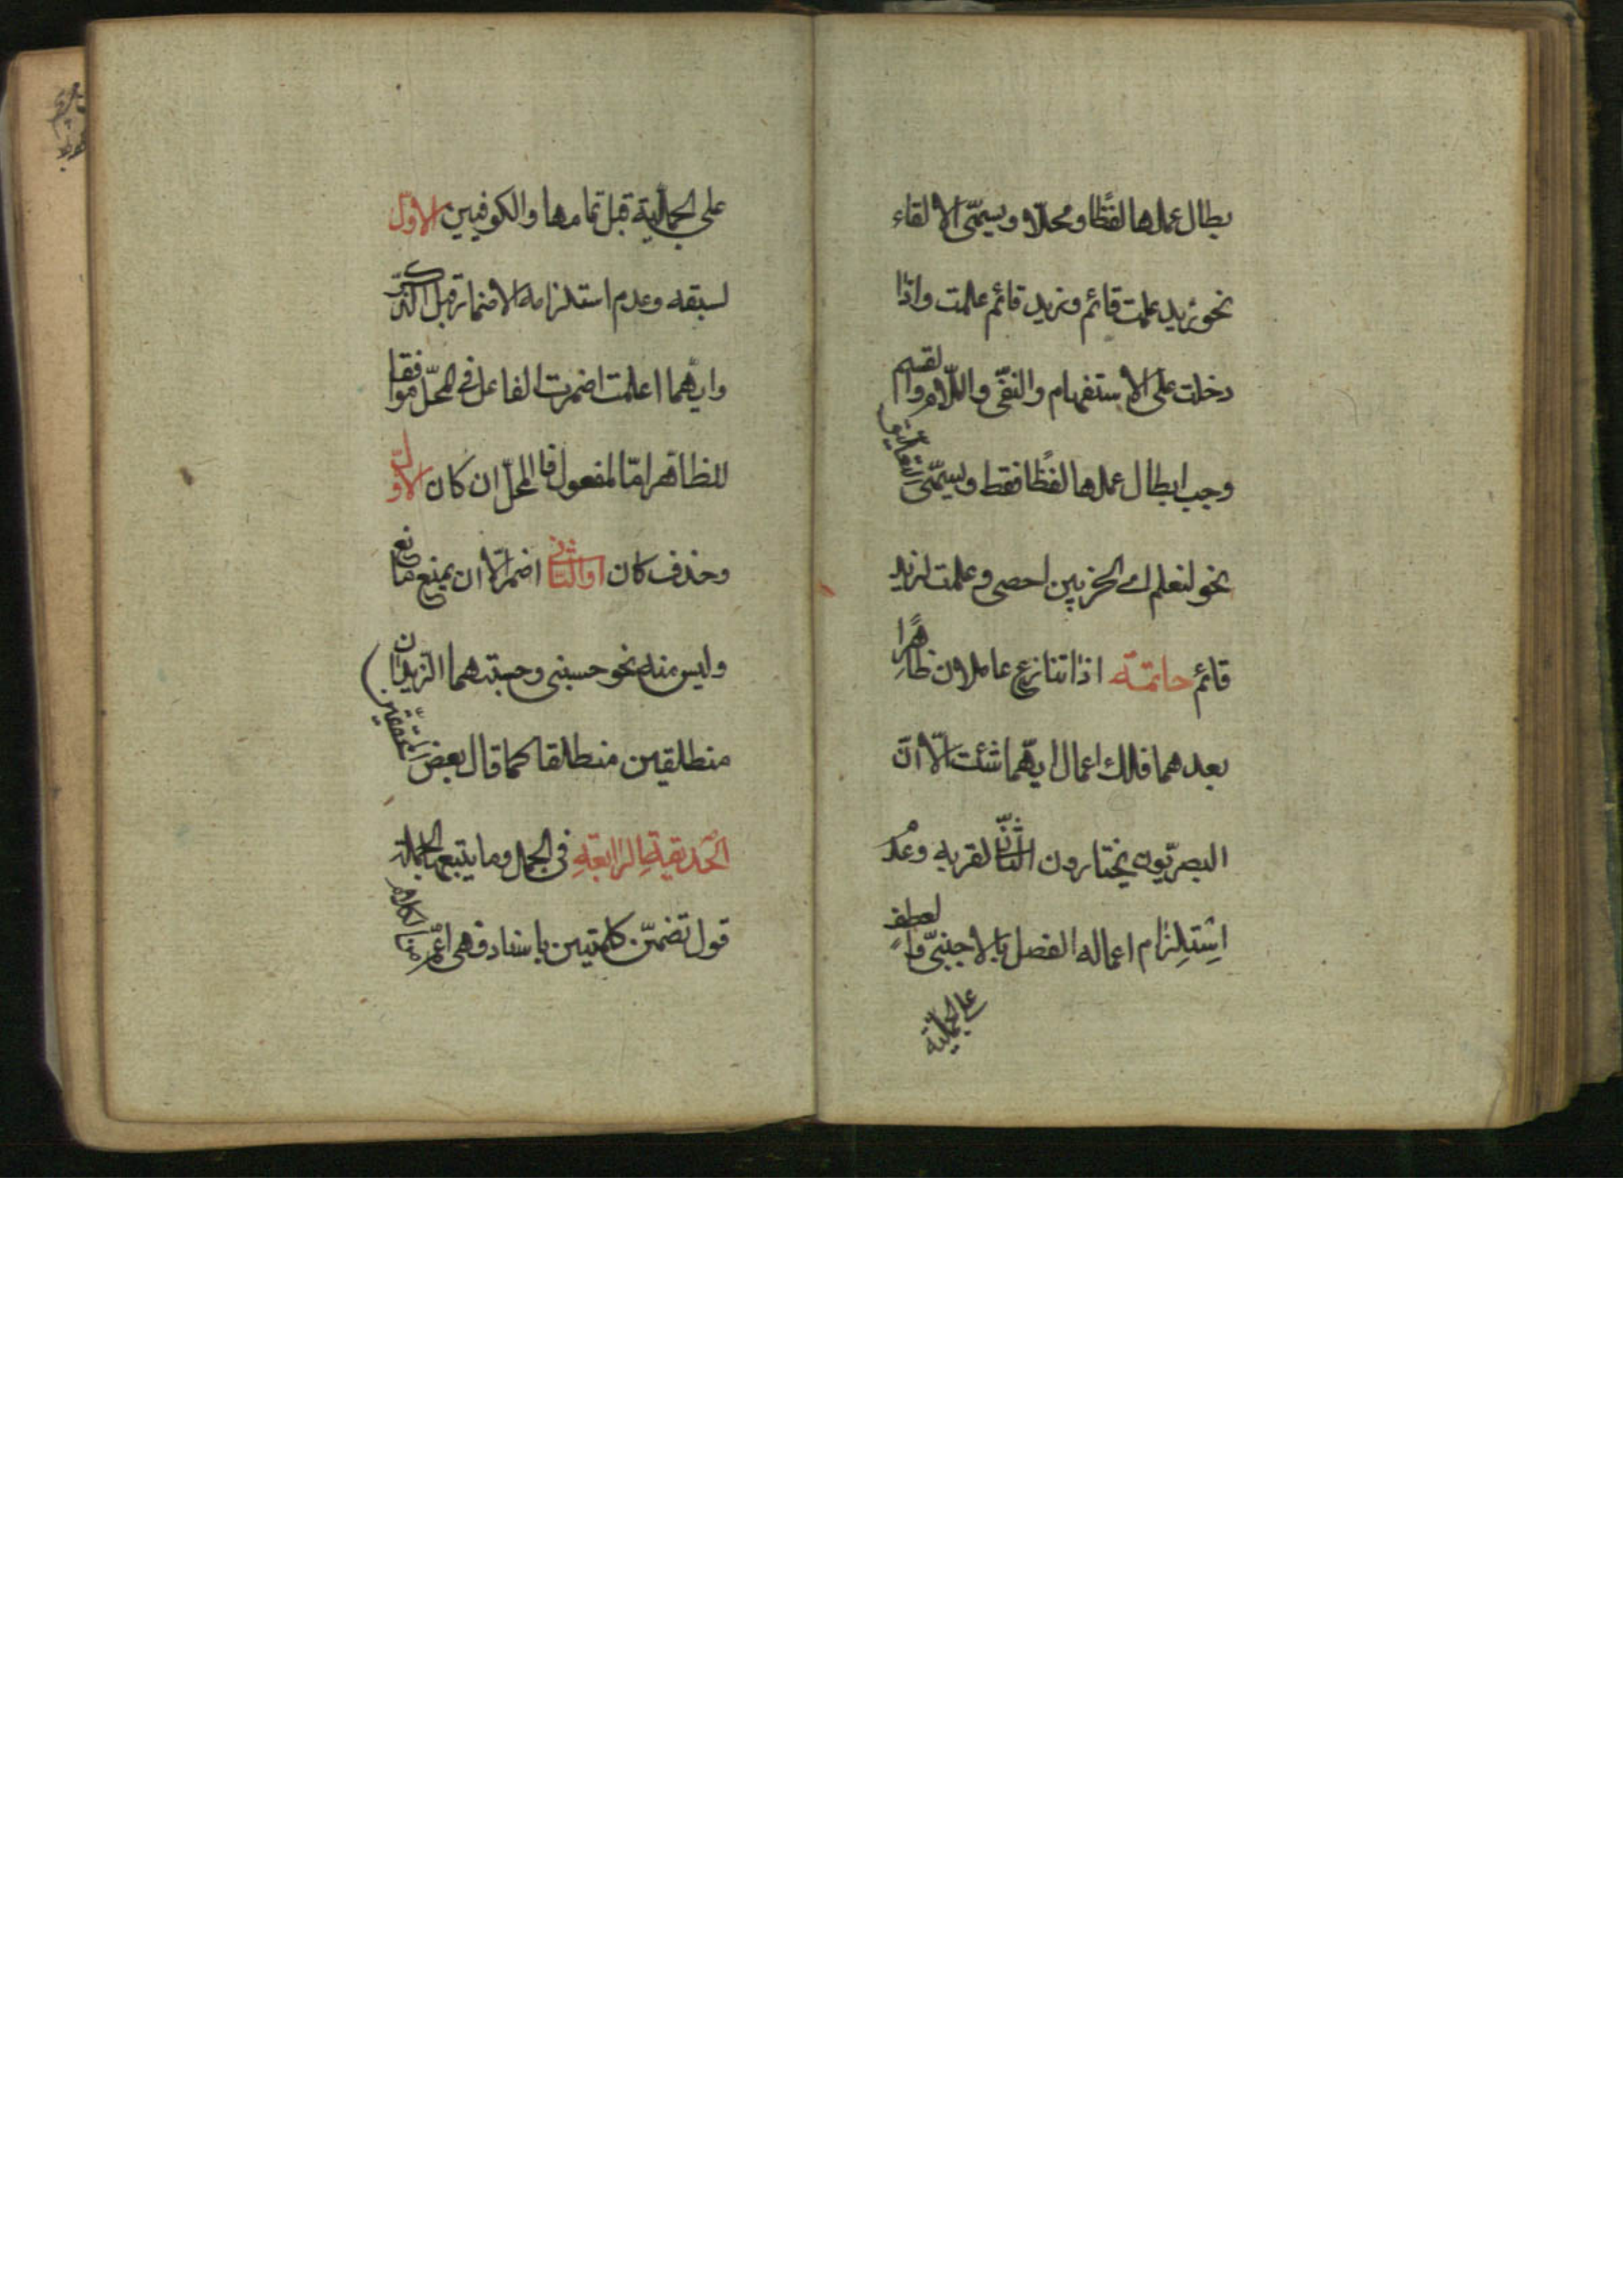 بطال عملها لفظا ومحلا ويسمّى الالقاء
نحو زيد علمت قائم وزيد قائم علمت واذا
دخلت على الاستفهام والنفى واللام والقسم
وجب ابطال عملها لفظًا فقط ويسمّى تعليق
نحو لنعلم اى الحزبين احصى وعلمت لزيد
قائم خاتمة اذا تنازع عاملان ظاهرًا
بعدهما فلك اعمال ايّهما شئت الّا انّ
البصريّون يختارون الثانى لقربه وعدم
اِستِلزام اعماله الفصل بالاجنبىّ والعطف
على الجملية
على الجملية قبل تمامها والكوفيين الاوّل
لسبقه وعدم استلزامه الاضمار قبل الذكر
وايّهما اعلمت اضمرت الفاعل فى المحلّ موافقا
للظاهر امّا المفعول فالمحلّ ان كان الاوّل
وحذف كان اوالثانى اضمر الّا ان يمنع مانع
وليس منه نحو حسبنى وحسبتهما الزيدان
منطلقين منطلقا كما قال بعض المحققين
الحَديقةِ الرّابعَةِ فى الجمل وما يتبعها الجملة
قول تضمّن كلمتين باسناد فهى اعّم من الكلام